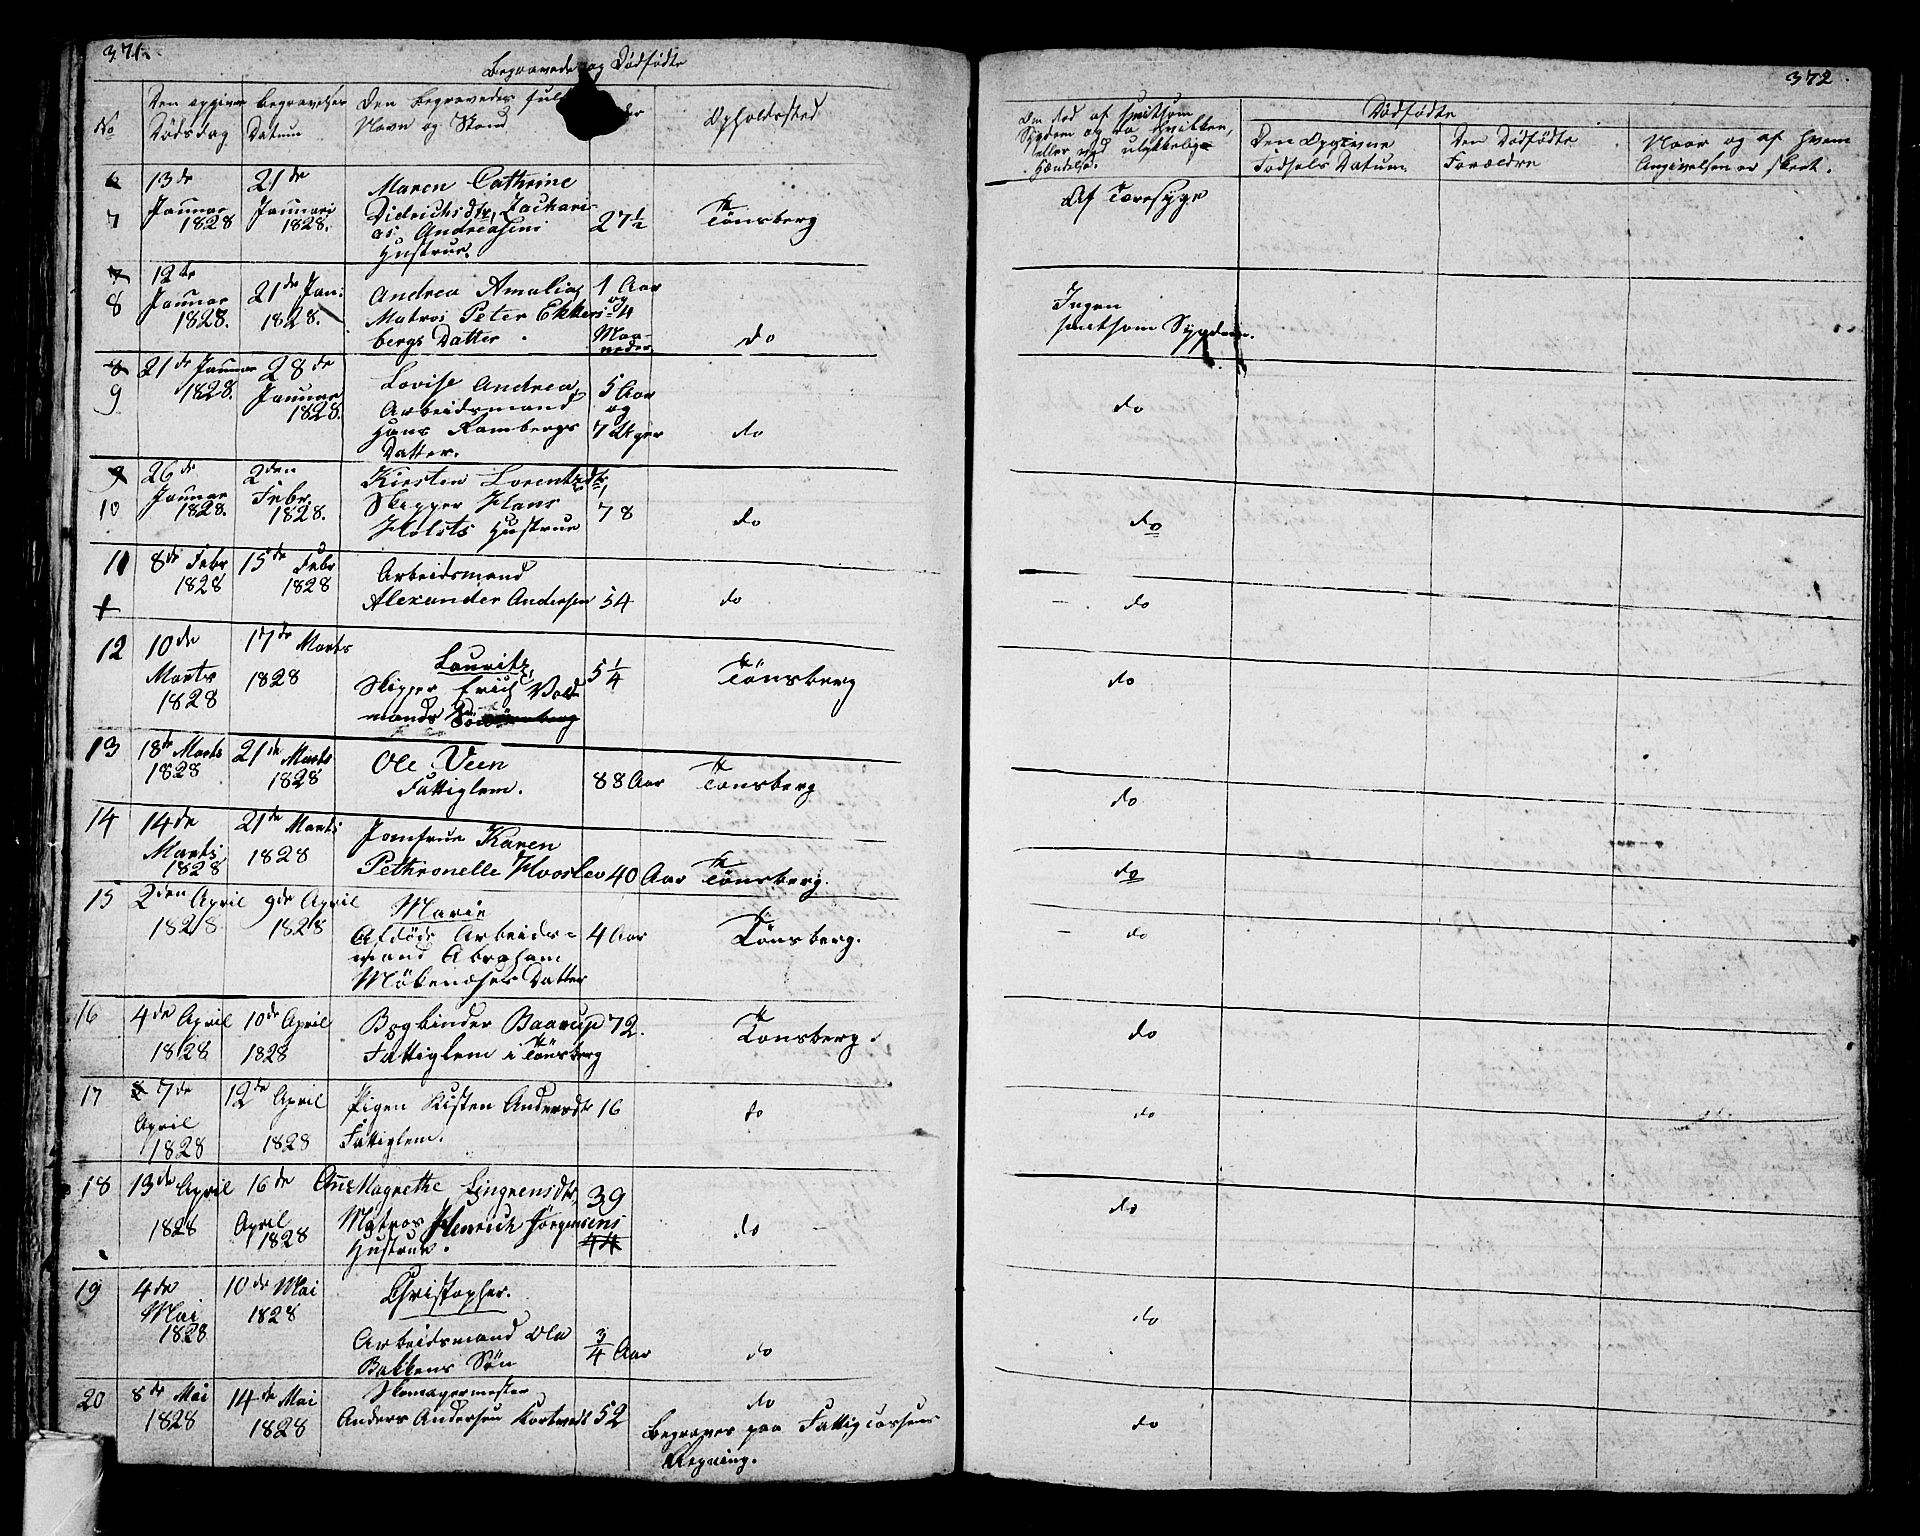 371.
Begravede og Dødfødte
No
Den opgivne Dødsdag
Begravelses Datum
Den Begravedes fulde Navn og Stand
Opholdssted
6
7
13de Januar 1828
21de Januari 1828.
Maren Cathrine
Didrichsdtr, Zachari-
as Andreasens
Hustrue.
27 1/2
Tönsberg
7
8
12te Januar 1828.
21de Jan. 1828.
Andrea Amalia,
Matros Peter Ekkers-
bergs Datter.
1 Aar
og 4
Maa-
neder
do
8
9
21de Januar 1828.
28de Januar 1828.
Lovise Andrea,
Arbeidsmand
Hans Rambergs
Datter.
5 Aar
og
7 Uger
do
9
10
26de Januar 1828.
2den Febr. 1828.
Kirsten Lorentzdtr,
Skipper Hans
Holsts Hustrue
78
do
11
8de Febr 1828
15de Febr 1828
Arbeidsmand
Alexander Andersen
54
do
12
10de Marts 1828
17de Marts 1828
Lauritz,
Skipper Erich Vold-
mands Sön
5 1/4
Tönsberg
13
18de Marts 1828
21de Marts 1828
Ole Veen
Fattiglem.
88 Aar
Tönsberg
14
14de Marts 1828
21de Marts 1828
Jomfrue Karen
Pethronelle Hvoslev
40 Aar
Tönsberg.
15
2den April 1828
9de April 1828
Marie
Afdöde Arbeids-
mand Abraham
Mökenæsets Datter
4 Aar
Tönsberg.
16
4de April 1828
10de April 1828
Bogbinder Baarup
Fattiglem i Tönsberg
72.
Tönsberg
17
8 7de April 1828
12de April 1828
Pigen Kisten Andersdtr
Fattiglem.
16
do
18
13de April 1828
16de April 1828
Ane Magrethe Lingrensdtr,
Matros Henrich Jörgensens
Hustrue.
39
44
do
19
4de Mai 1828
10de Mai 1828
Christopher.
Arbeidsmand Ole
Bakkens Sön
3/4 Aar
do
20
8de Mai 1828
14de Mai 1828
Skomagermester
Anders Andersen Kortvedt
52
do
Begraves paa Fattigcassens
Regning.
372
Om död af smitsom
Sygdom og da hvilken,
eller ved ulykkelig
Hændelse.
Dödfödte
Den Opgivne
Födsels Datum.
Den Dödfödte
Forældre
Naar og af hvem
Angivelsen er skeet.
Af Tæresyge
Ingen
smitsom Sygdom.
do
do
do
do
do
do
do
do
do
do
do
do